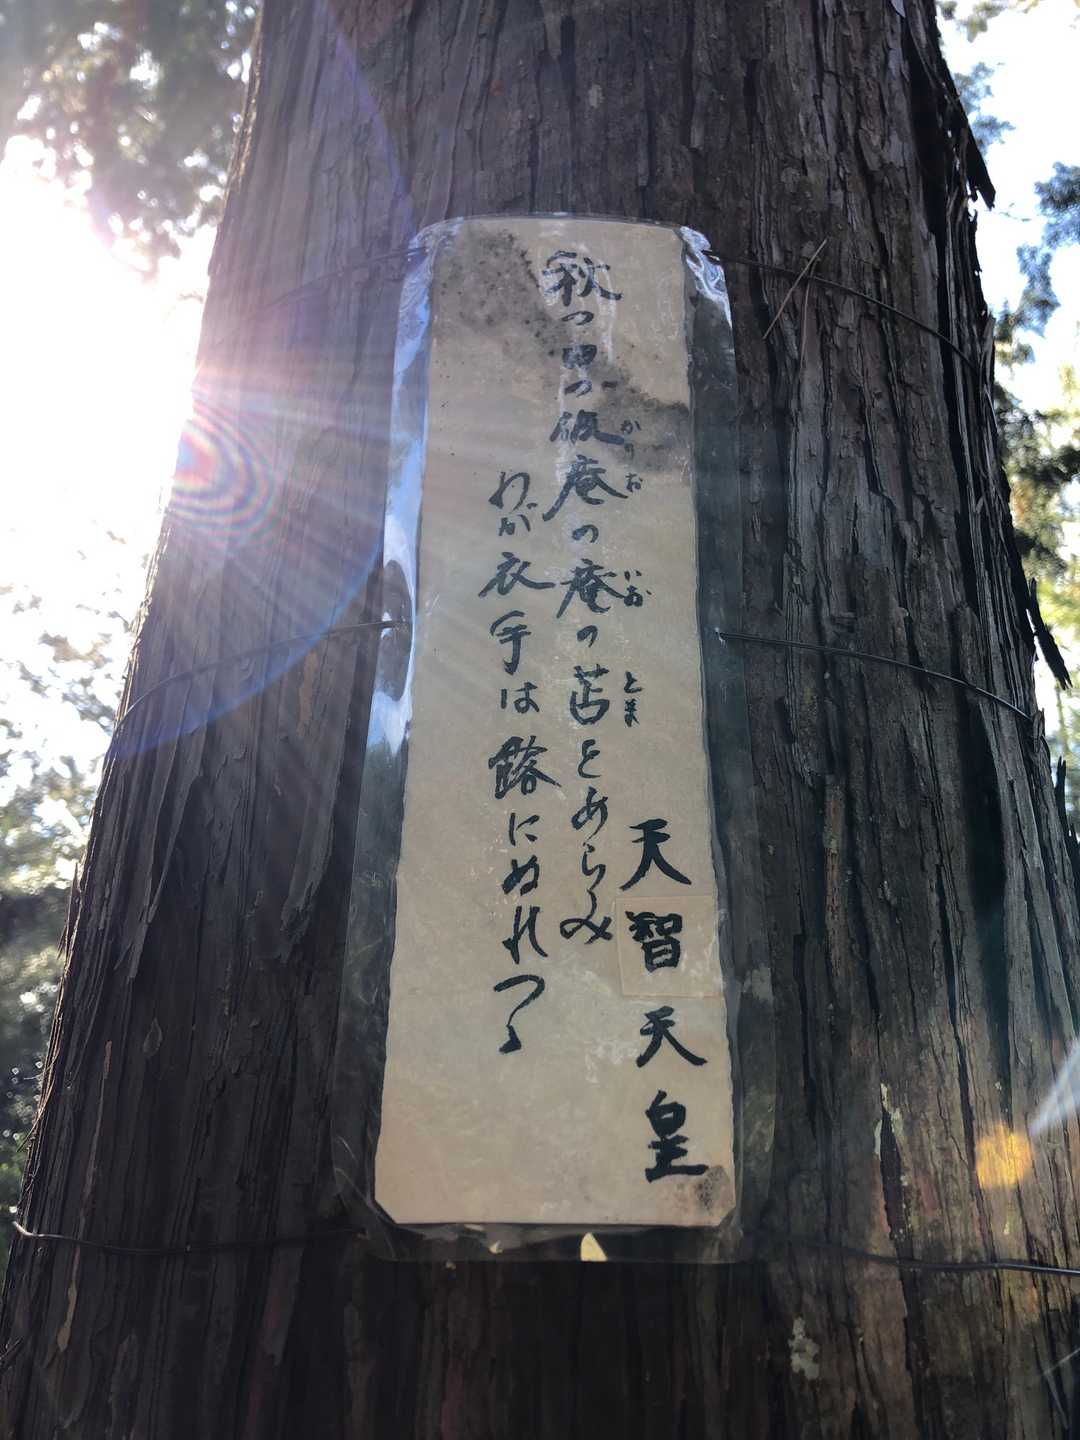 天智天皇
かりお いお とま
秋の田の仮庵の庵の苫をあらみ
わが衣手は露にぬれつゝ